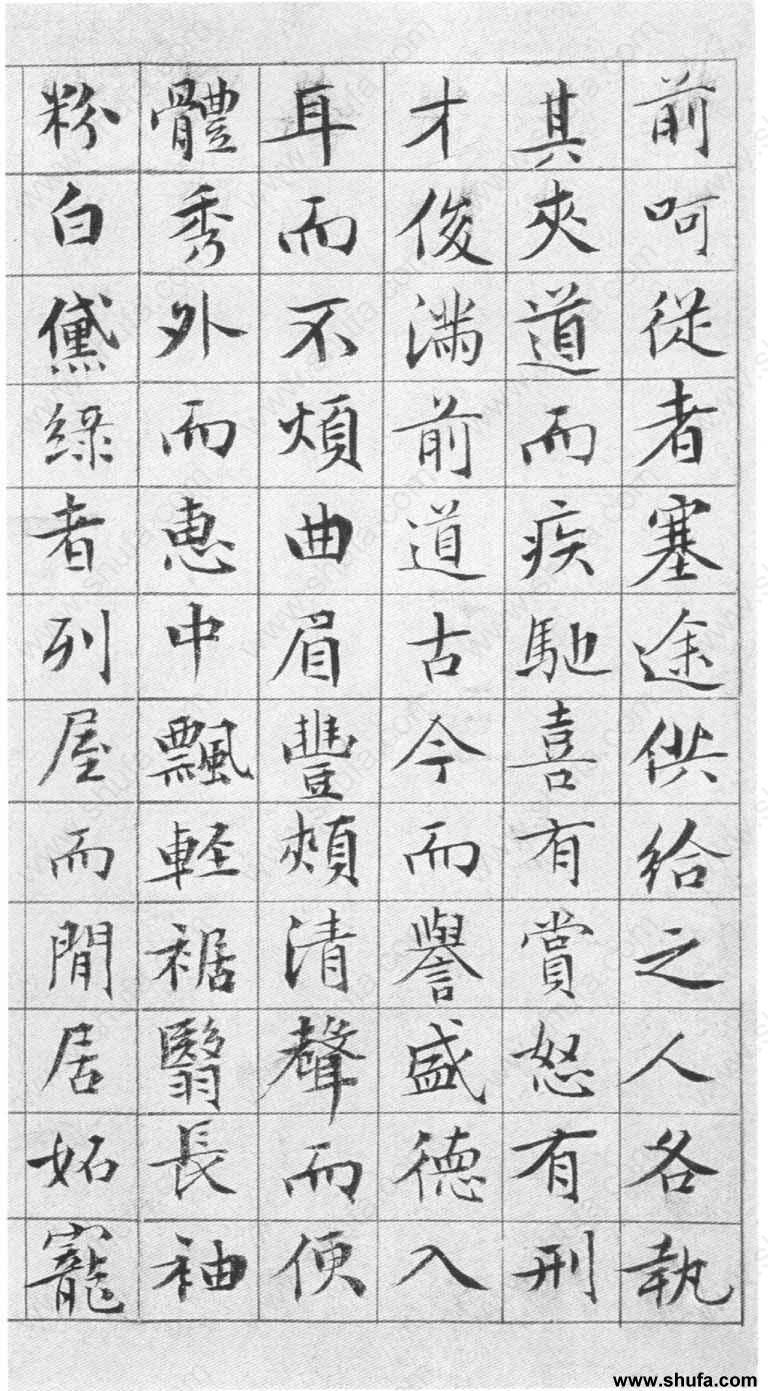 前呵從者塞途供給之人各執
其夾道而疾馳喜有賞怒有刑
才俊滿前道古今而譽盛德入
耳而不煩曲眉豐頰清聲而便
體秀外而惠中飄輕裾翳長袖
粉白黛綠者列屋而閒居妬寵
www.shufa.com